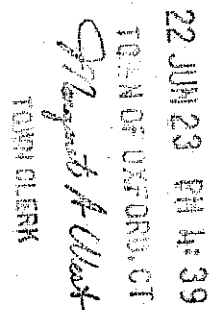 22 JUN 23 PM 4:39
TOWN OF OXFORD, CT
Margaret A West
TOWN CLERK